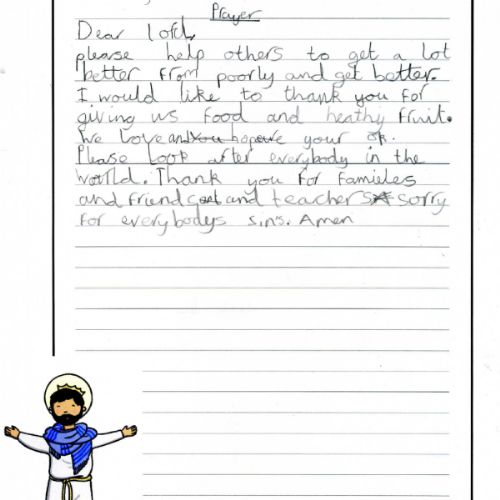 Prayer
Dear Lord,
please help others to get a lot
better from poorly and get better.
I would like to thank you for
giving us food and heathy fruit.
we love your ok.
Please Look after everybody in the
world. Thank you for famieles
and friend and teachers sorry
for everybodys sins. Amen